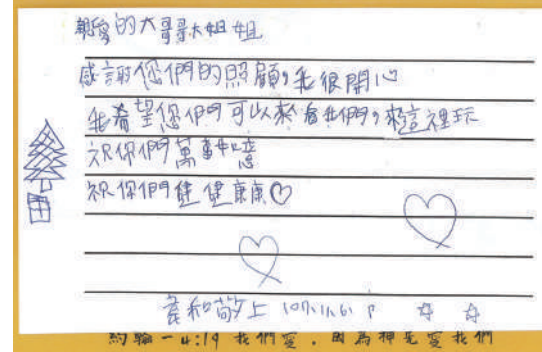 親愛的大哥哥大姐姐
感謝您們的照顧,我很開心
我希望您們可以來看我們,來這裡玩
祝你們萬事如意
祝你們健健康康♡
敬上 107.11.6
約翰一4:19 我們愛,因為神先愛我們